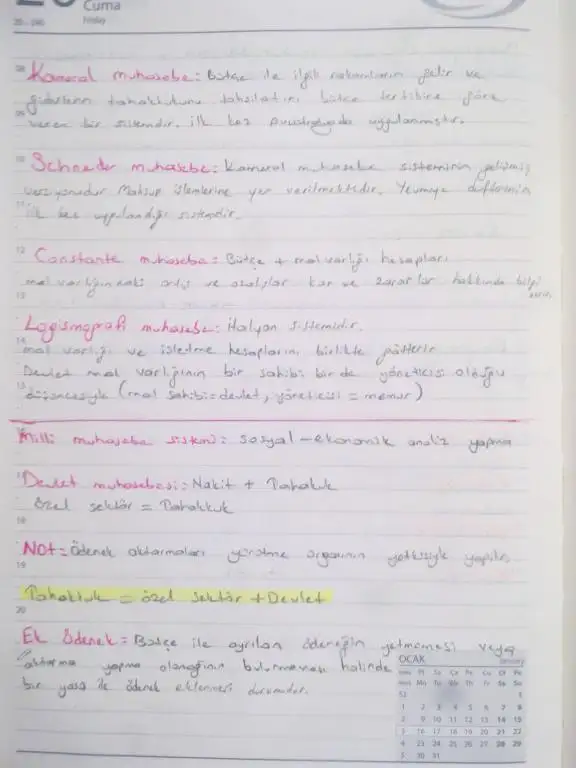 20
Cuma
Friday
Kameral muhasebe: Bütçe ile ilgili rakamların gelir ve
giderlerin tahakkukunu tahsilatını bütçe tertibine göre
veren bir sistemdir. ilk kez Avusturyada uygulanmıştır.
Schneider muhasebe: Kameral muhasebe sisteminin gelişmiş
versiyonudur Mahsup işlemlerine yer verilmektedir. Yevmiye defterinin
ilk kez uygulandığı sistemdir.
12 Constante muhasebe = Bütçe + mal varlığı hesapları
mal varlığındaki artış ve azalışlar kar ve zararlar hakkında bilgi
13
Logismografi muhasebe: İtalyan sistemidir.
14
mal varlığı ve işletme hesaplarını birlikte gösterir
Devlet mal varlığının bir sahibi bir de yöneticisi olduğu
15 düşüncesiyle (mal sahibi = devlet, yöneticisi = memur)
Milli muhasebe sistemi: sosyal - ekonomik analiz yapma
Devlet muhasebesi: Nakit + Tahakkuk
özel sektör = Tahakkuk
18
Not = ödenek aktarmaları yürütme organının yetkisiyle yapılır.
19
Tahakkuk = özel sektör + Devlet
20
Ek Ödenek = Bütçe ile ayrılan ödeneğin yetmemesi veya
aktarma yapma olanağının bulunmaması halinde
bir yasa ile ödenek eklenmesi durumudur.
OCAK January
Pt Sa Ça Pe Cu Ct Pz
Mo Tu We Th Fr Sa Su
52 1
1 2 3 4 5 6 7 8
2 9 10 11 12 13 14 15
3 16 17 18 19 20 21 22
4 23 24 25 26 27 28 29
5 30 31